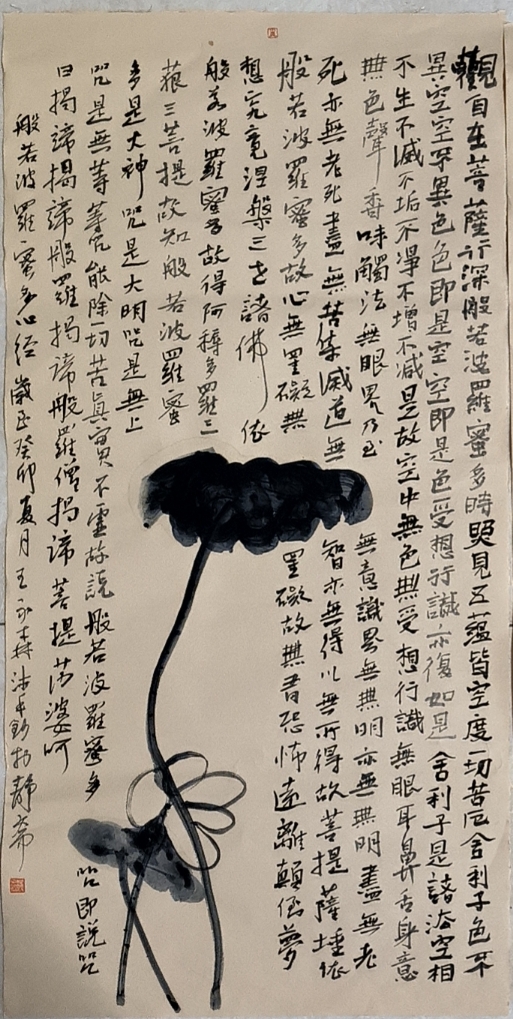 觀自在菩薩行深般若波羅蜜多時照見五蘊皆空度一切苦厄舍利子色不
異空空不異色色即是空空即是色受想行識亦復如是舍利子是諸法空相
不生不滅不垢不淨不增不減是故空中無色無受想行識無眼耳鼻舌身意
無色聲香味觸法無眼界乃至無意識界無無明亦無無明盡無老
死亦無老死盡無苦集滅道無智亦無得以無所得故菩提薩埵依
般若波羅蜜多故心無罣礙無罣礙故無有恐怖遠離顛倒夢
想究竟涅槃三世諸佛依
般若波羅蜜多故得阿耨多羅三
藐三菩提故知般若波羅蜜
多是大神咒是大明咒是無上
咒是無等等咒能除一切苦真實不虛故說般若波羅蜜多咒即說咒
曰揭諦揭諦般羅揭諦般羅僧揭諦菩提莎婆呵
般若波羅蜜多心經歲在癸卯夏月王永森沐手鈔於靜齋